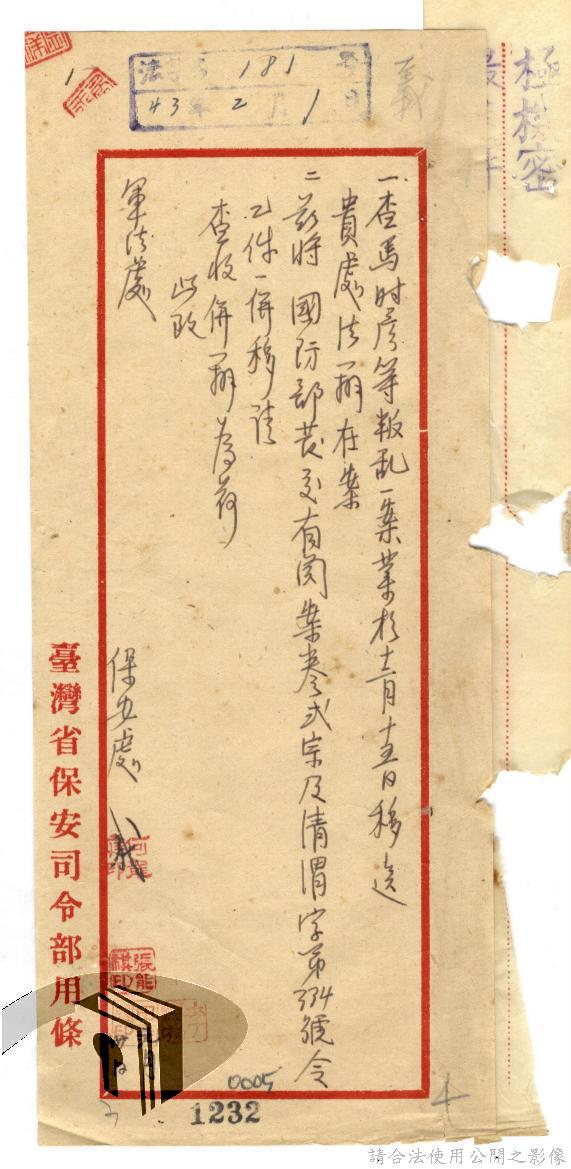 極機密
義
法字第 181 號
43年 2 月 1 日
一、查馬时彥等叛乱一案業於十二月十五日移送
貴處法辦在案
二、茲將 國防部发交有関案卷弍宗及清渭字第334號令
乙件一併移請
查收併辦為荷
此致
軍法處
保安處
張能
臺灣省保安司令部用條
0005
1232
請合法使用公開之影像